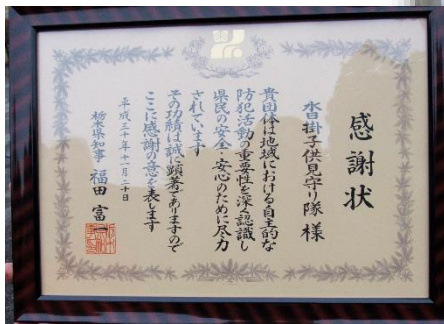 感謝状
水掛子供見守り隊 様
貴団体は地域における自主的な
防犯活動の重要性を深く認識し
県民の安全・安心のために尽力
されています
その功績は誠に顕著でありますので
ここに感謝の意を表します
平成三十年十一月二十日
栃木県知事 福田富一